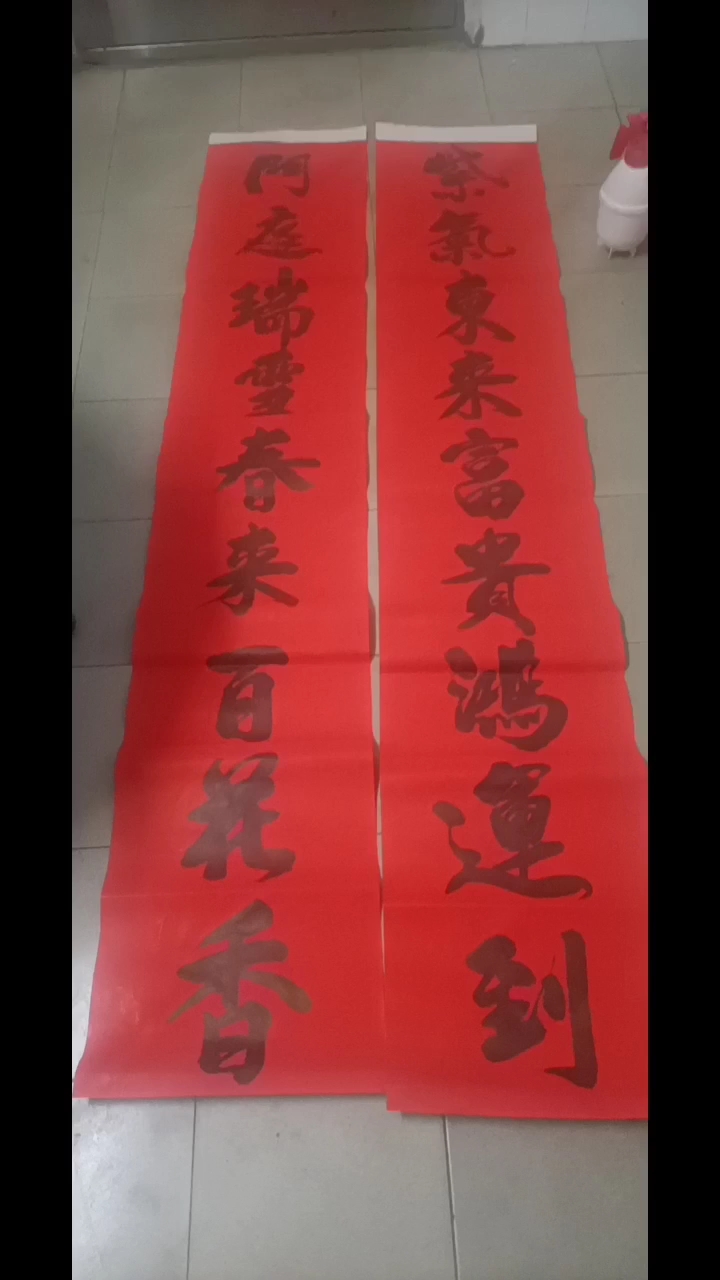 紫氣東来富貴鴻運到
門庭瑞雪春来百花香